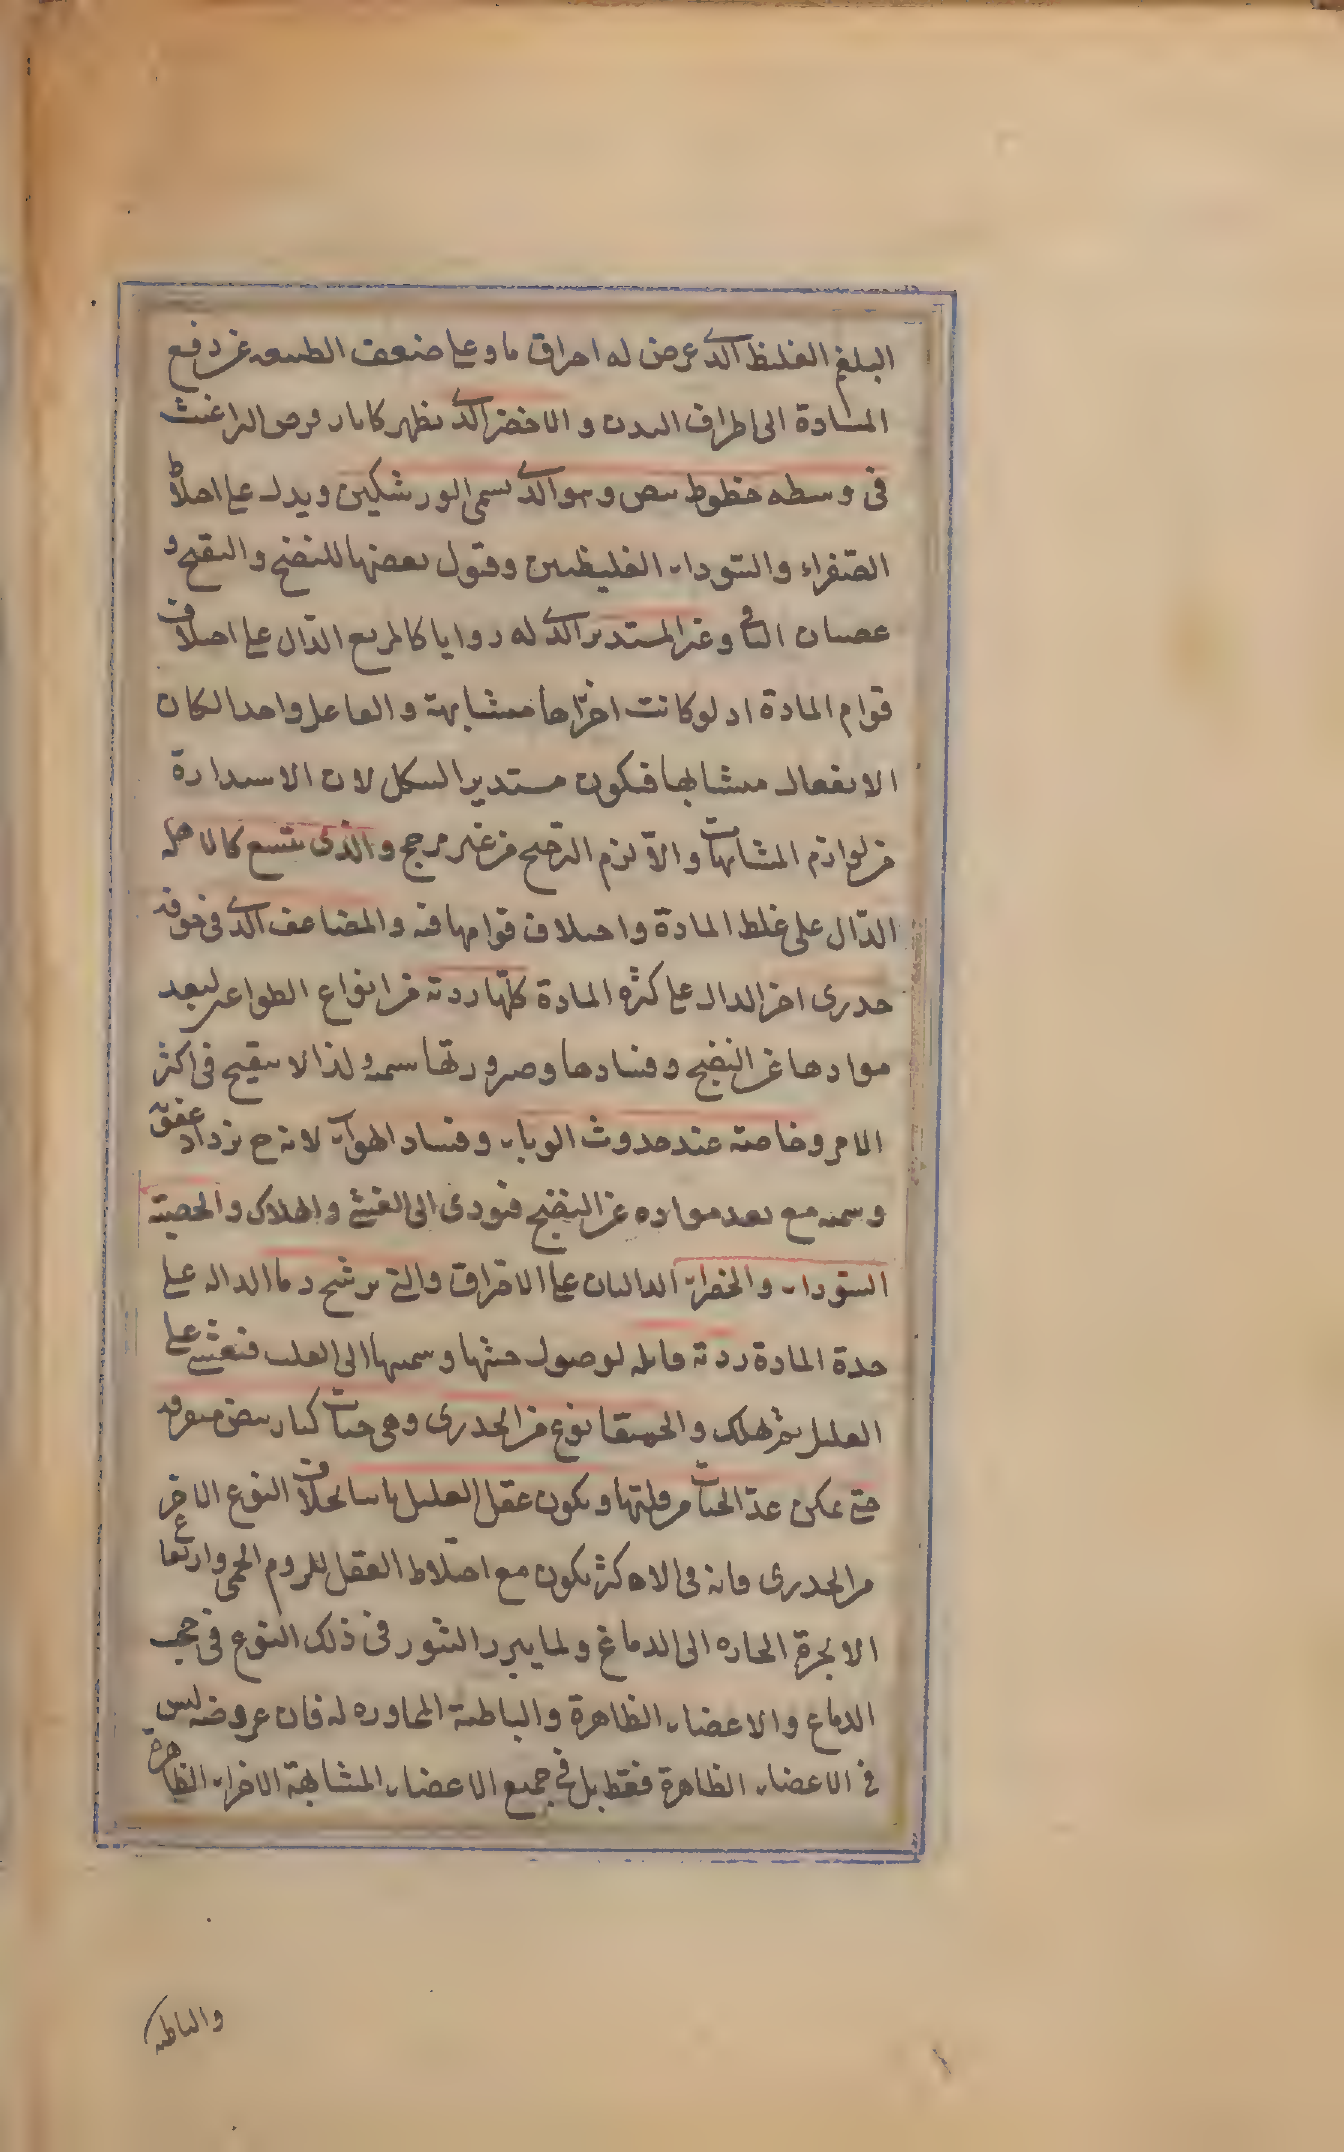 البلغم الغليظ الذى عرض له احراق ما وعلى ضعف الطبيعه عن دفع
المادة الى اطراف البدن و الاخضر الذى يظهر كاثار قرص البراغيث
فى وسطه خطوط بيض وهو الذى يسمى الورشكين ويدل على اختلاط
الصفراء والسوداء الغليظين وقبول بعضها للنضج والتقيح و
عصيان الباقى وغير المستدير الذى له زوايا كالمربع الدال على اختلاف
قوام المادة اذ لو كانت اجزاءها متشابهة والفاعل واحدا لكان
الانفعال متشابها فيكون مستدير الشكل لان الاستدارة
من لوازم المتشابهات والا لزم الترجيح من غير مرجح والذى يتسع كالاكله
الدال على غلظ المادة واختلاف قوامها فيه والمضاعف الذى فى جوفه
جدرى اخر الدال على كثره المادة كلها رديه من انواع الطواعين لبعد
موادها عن النضج وفسادها وصيرورتها سميه ولذا لا يتقيح فى اكثر
الامر وخاصة عند حدوث الوباء وفساد الهواء لانه ح يزداد عفونة
وسميه مع بعد مواده عن النضج فيودى الى الغشى والهلاك والحصبة
السوداء والخضراء الدالتان على الاحراق والتى ترشح دما الداله على
حدة المادة رديه قاتله لوصول خبثها وسميتها الى القلب فيغشى على
العليل ثم يهلك والحميقا نوع من الجدرى وهى حبات كبار بيض متفرقه
حتى يمكن عد الحبات من قلتها ويكون عقل العليل ثابتا بخلاف النوع الاخر
من الجدرى فانه فى الاكثر يكون مع اختلاط العقل للزوم الحمى وارتفاع
الابخرة الحاره الى الدماغ ولما يبرز البثور فى ذلك النوع فى حجب
الدماغ والاعضاء الظاهرة والباطنة المجاوره له فان عروضه ليس
فى الاعضاء الظاهرة فقط بل فى جميع الاعضاء المتشابهة الاجزاء الظاهرة
والباطنه